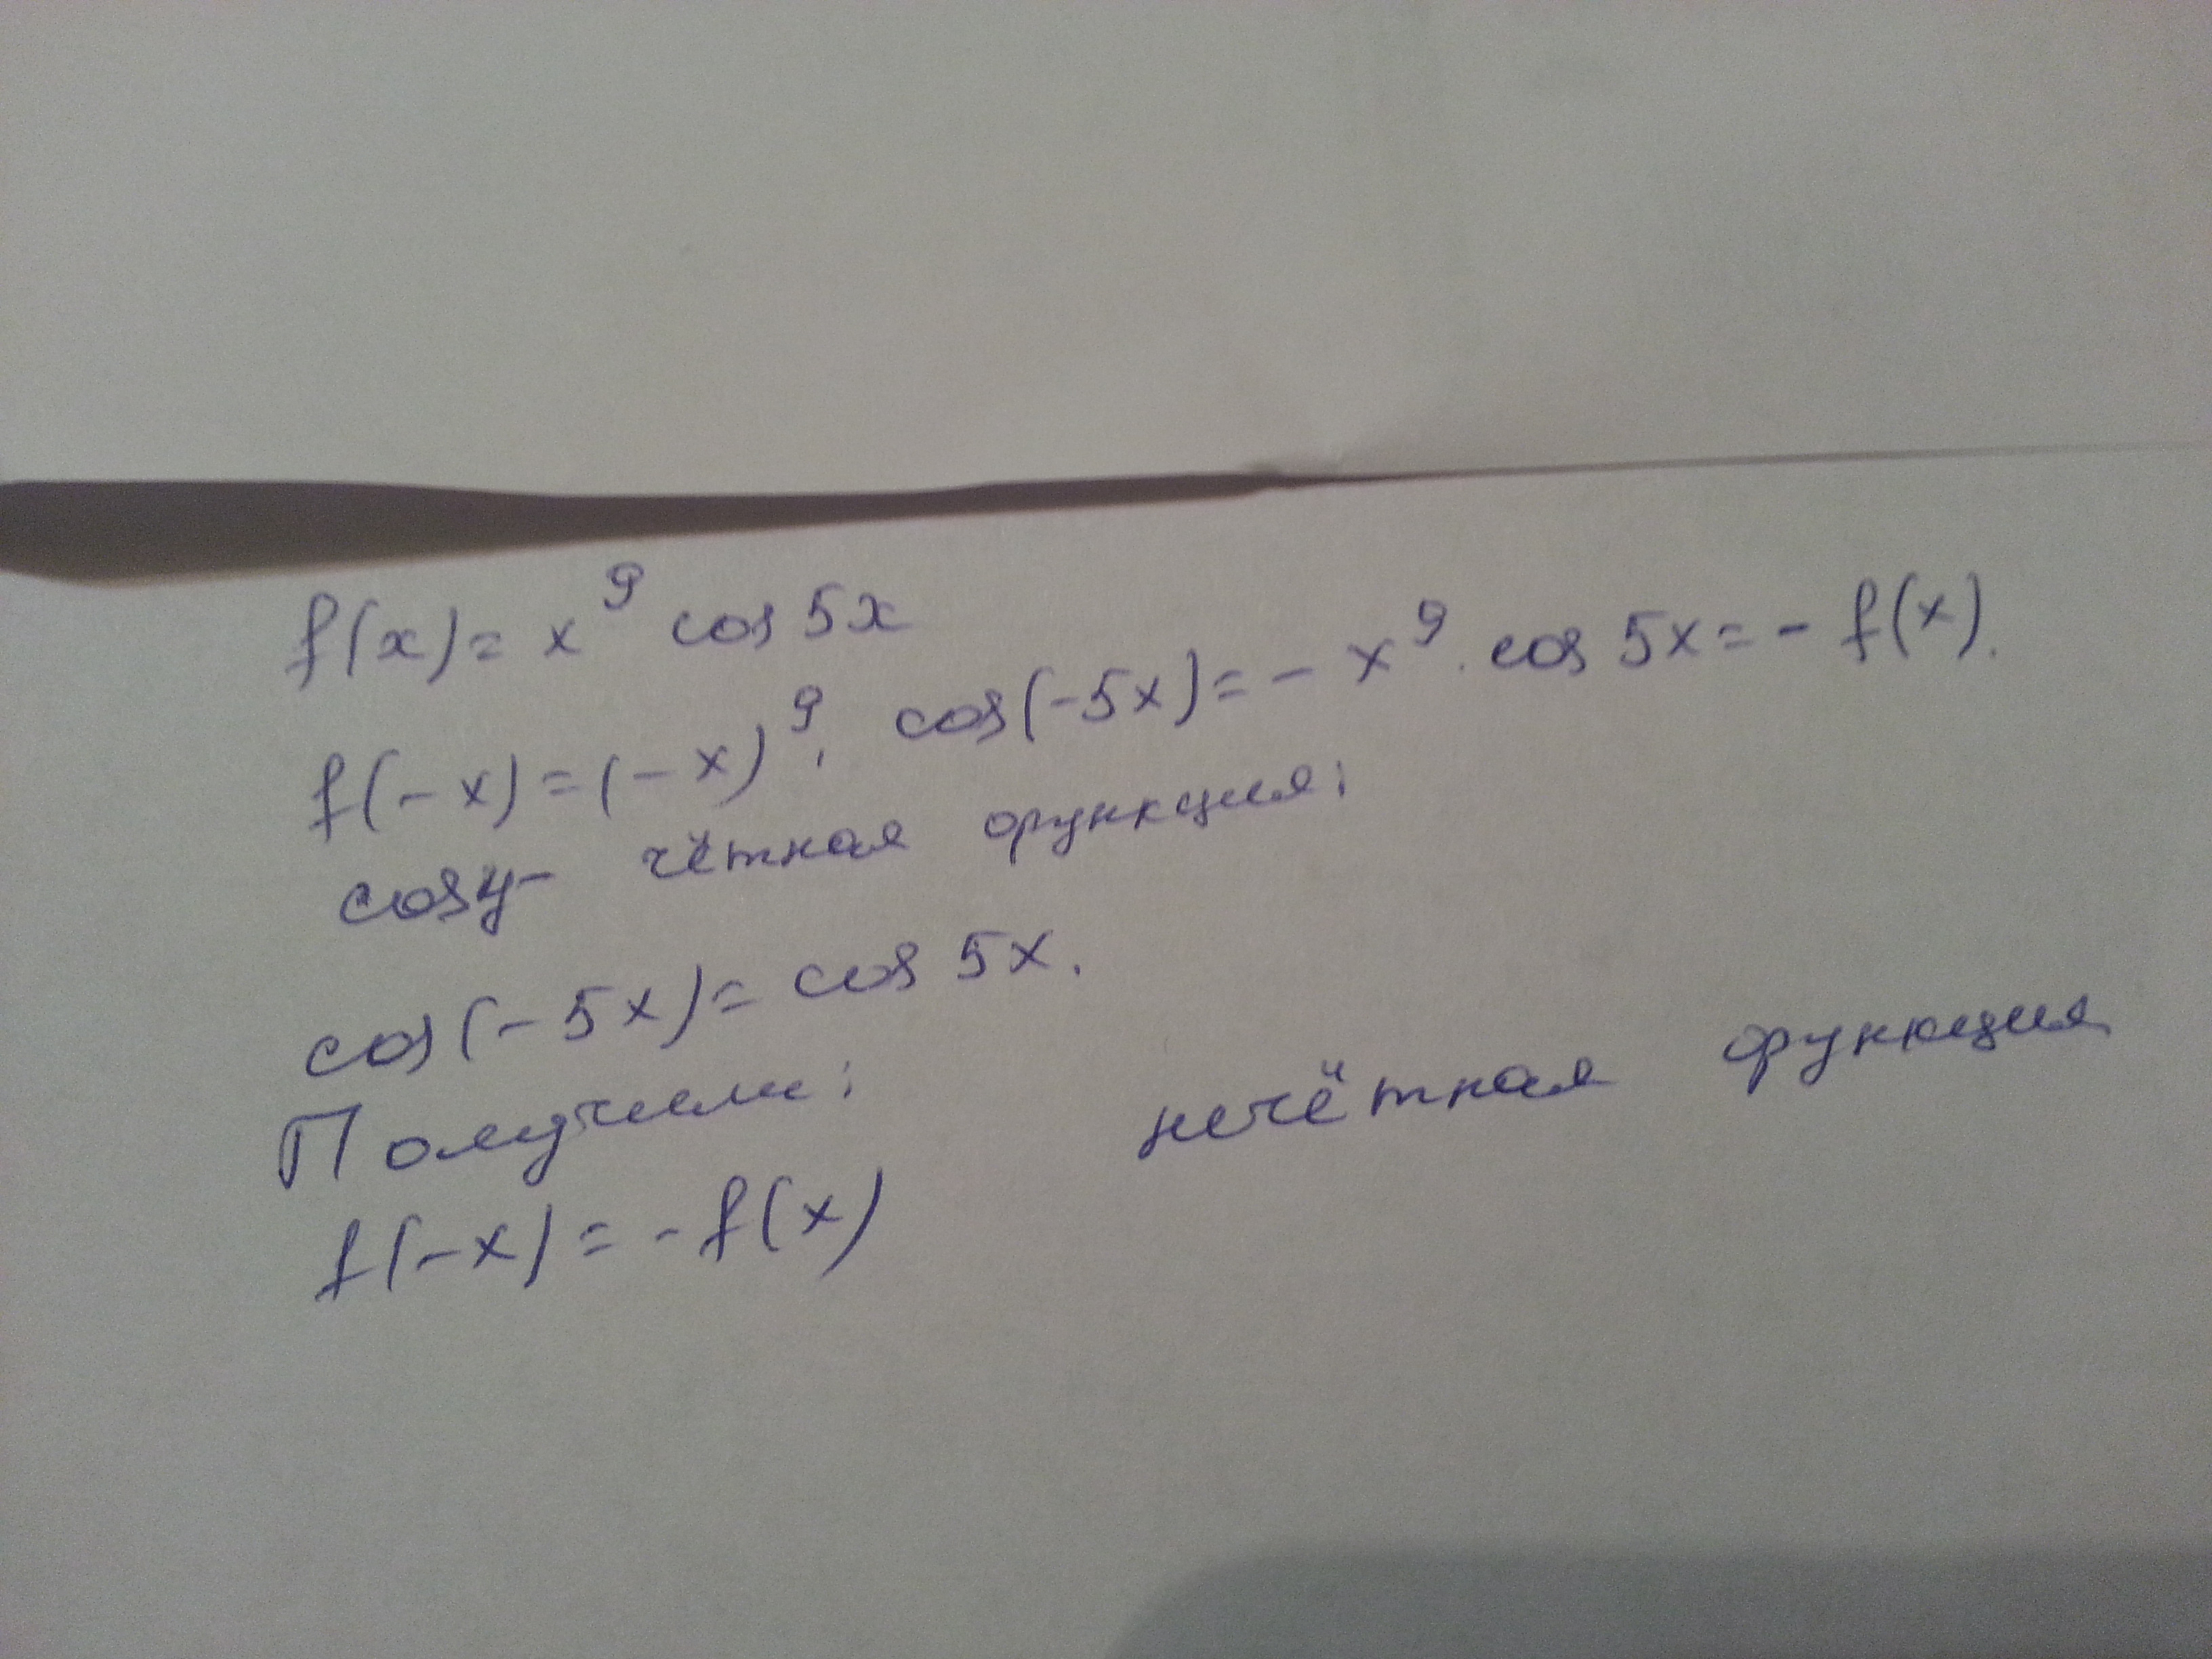 f(x)= x⁹ cos 5x
f(-x)=(-x)⁹· cos(-5x)= - x⁹· cos 5x= - f(x).
cos y- чётная функция;
cos(-5x)= cos 5x.
Получили:
f(-x)= -f(x) нечётная функция